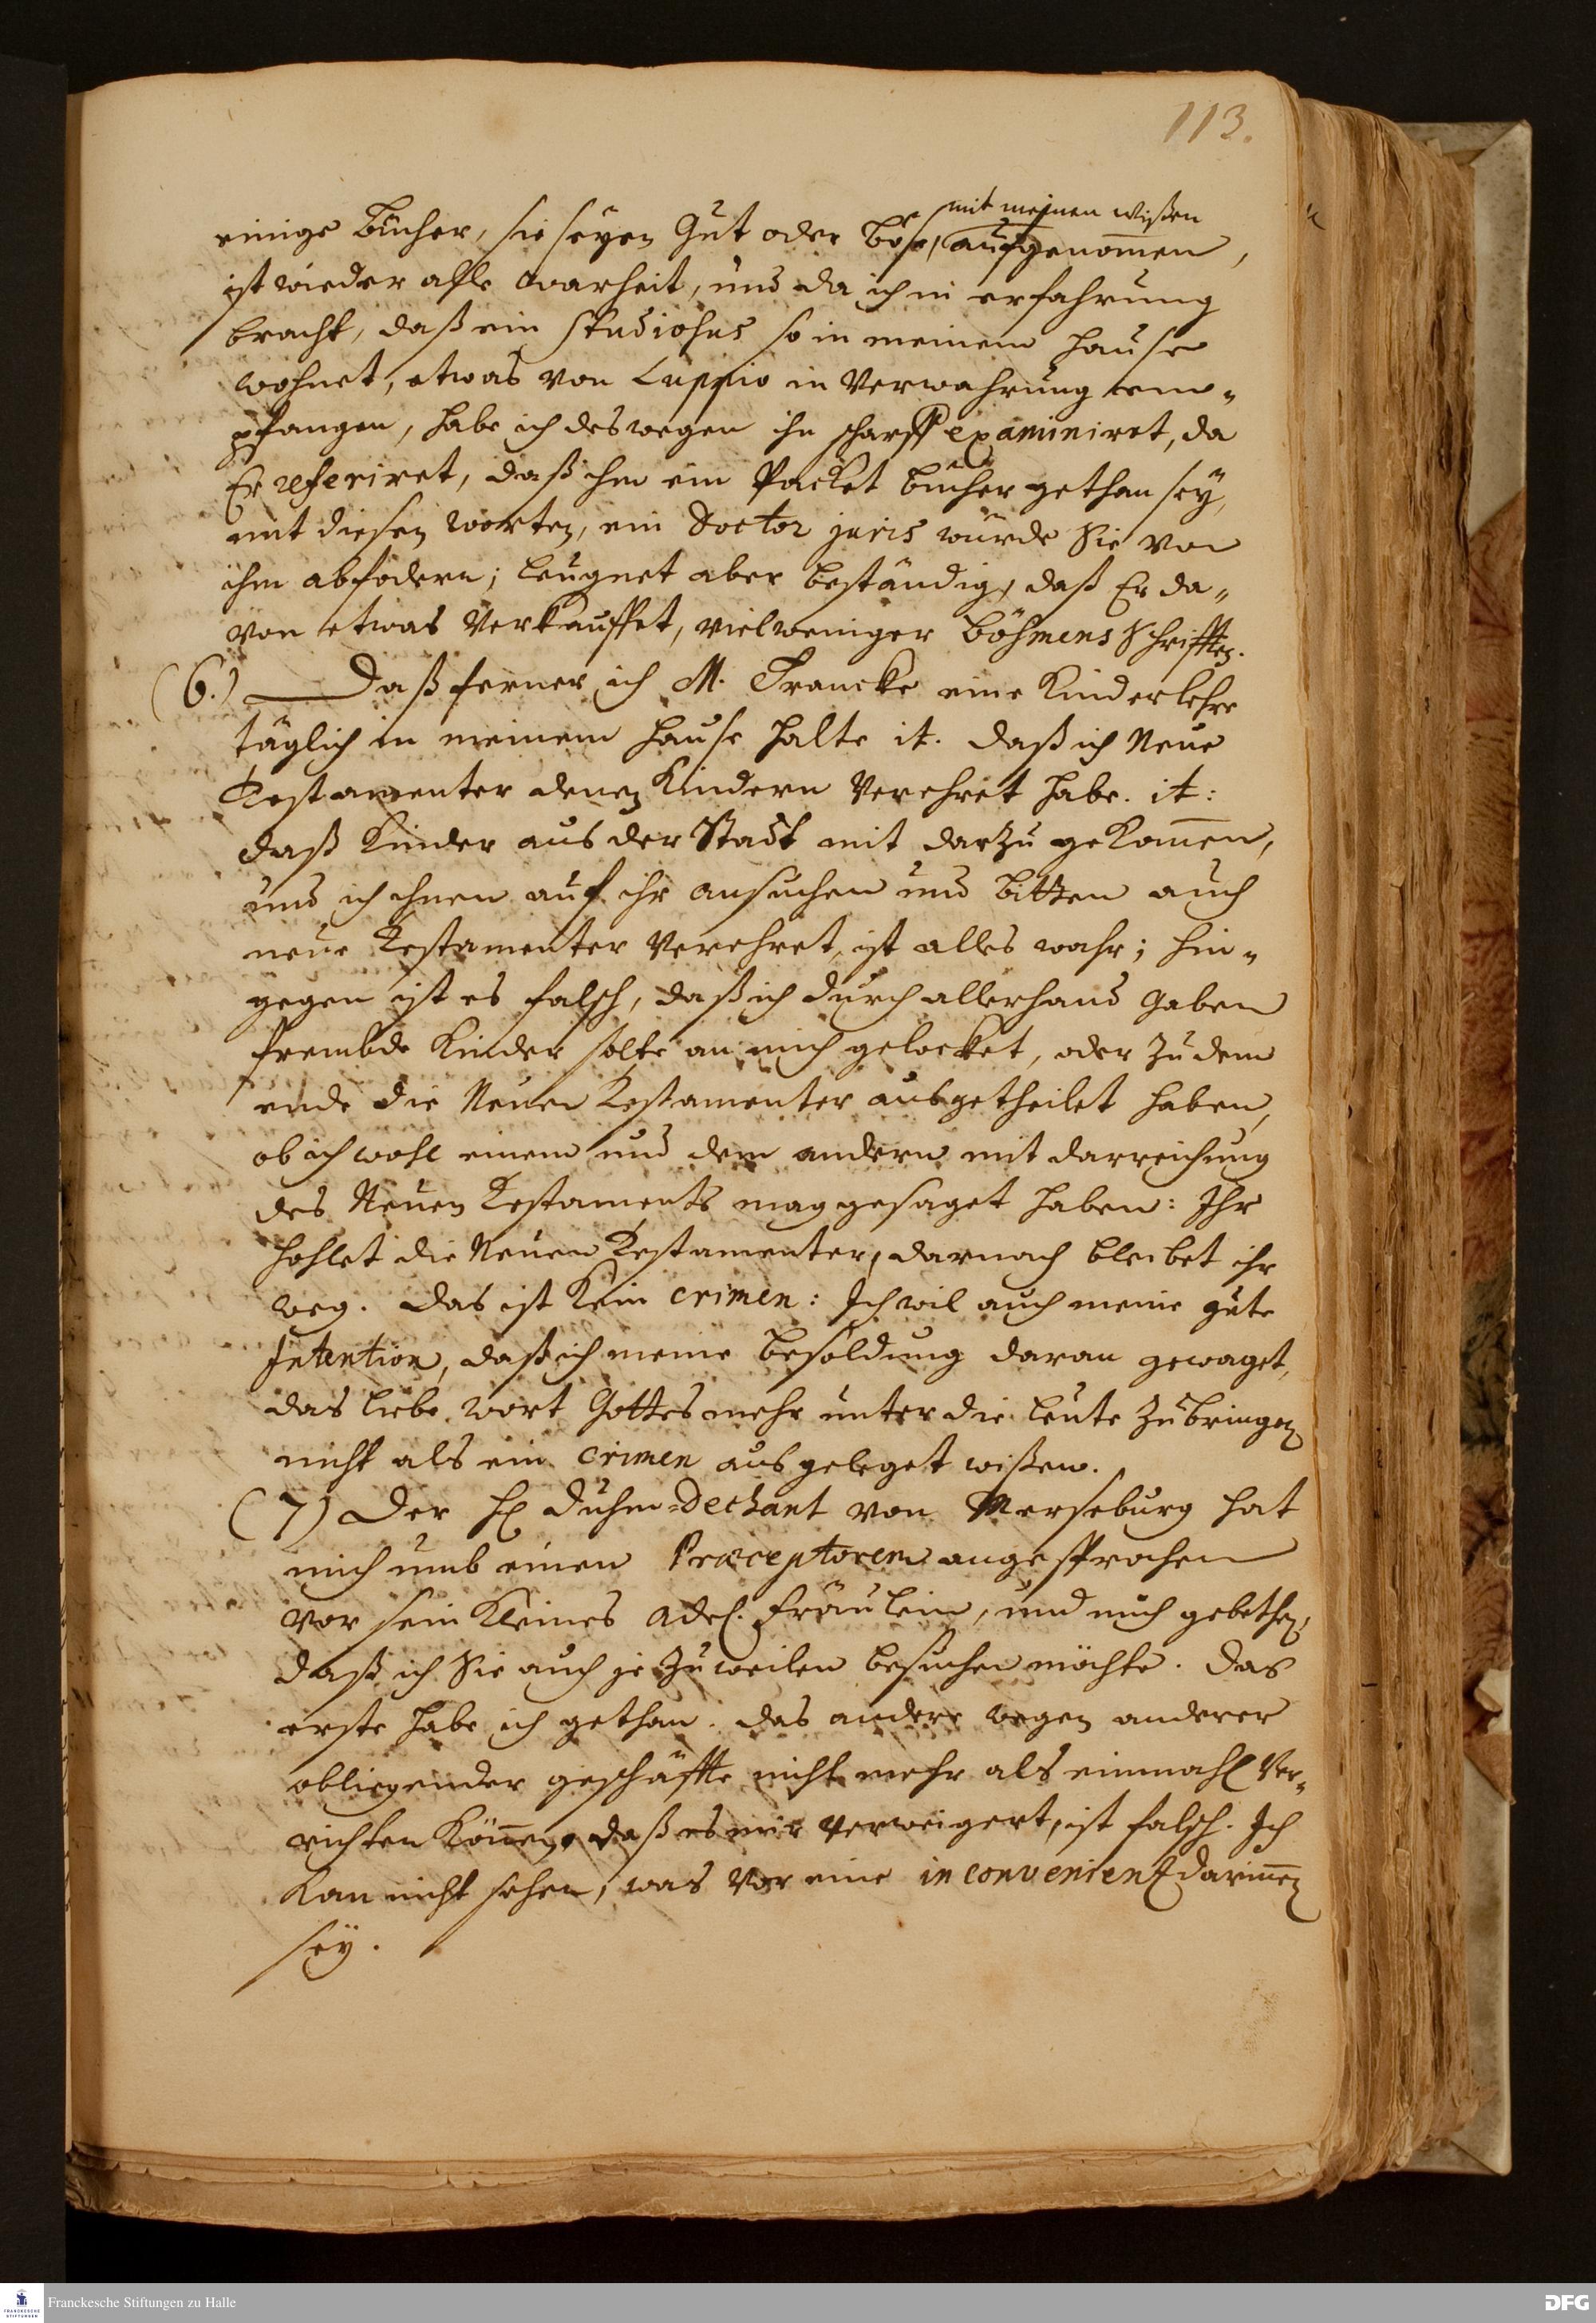 113.
mit meinen Wißen
einige Bücher, sie seyen Gut oder böse, aufgenom̅en,
ist wieder alle warheit, und da ich in erfahrung
bracht, daß ein Studiosus so in meinem Hause
wohnet, etwas von Luppio in Verwahrung em„
pfangen, habe ich deswegen ihn scharff examiniret, da
Er referiret, daß ihm ein Packet bücher gethan sey,
mit diesen worten, ein Doctor juris würde Sie von
ihm abfodern; leugnet aber beständig, daß Er da„
von etwas Verkauffet, vielweniger Böhmens Schrifften.
(6.) Daß ferner ich M. Francke eine Kinderlehre
täglich in meinem Hause halte it. daß ich Neue
Testamenter denen Kindern Verehret habe. it:
daß Kinder aus der Stadt mit darzu gekom̅en,
und ich ihnen auf ihr ansuchen und bitten auch
neue Testamenter Verehret, ist alles wahr; hin„
gegen ist es falsch, daß ich durch allerhand Gaben
frembde Kinder solte an mich gelocket, oder zu dem
ende die Neuen Testamenter ausgetheilet haben,
ob ich wohl einem und dem andern mit darreichung
des Neuen Testaments mag gesaget haben: Ihr
hohlet die Neuen Testamenter, darnach bleibet ihr
weg. Das ist kein crimen: Ich wil auch meine gute
Intention, daß ich meine besoldung daran gewaget,
das liebe wort Gottes mehr unter die leute zubringen
nicht als ein crimen ausgeleget wißen.
(7) Der H. Duhm-Dechant von Merseburg hat
mich umb einen Præceptorem angesprochen
vor sein kleines adel. Fräulein, und mich gebethen,
daß ich Sie auch je zuweilen besuchen möchte. Das
erste habe ich gethan. das andere wegen anderer
obliegender geschäffte nicht mehr als einmahl Ver„
richten kön̅en, daß es mir verweigert, ist falsch. Ich
kan nicht sehen, was vor eine inconvenientz darin̅en
sey.
Franckesche Stiftungen zu Halle
FRANCKESCHE STIFTUNGEN
DFG